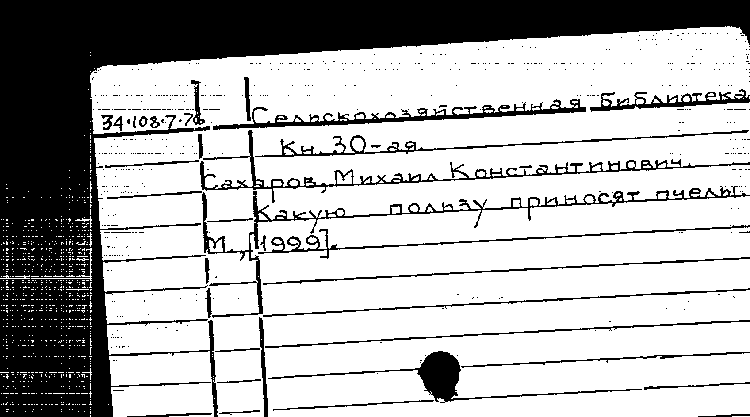 34.108.7.76 Сельскохозяйственная Библиотека
Кн. 30-ая.
Сахаров, Михаил Константинович.
Какую пользу приносят пчелы.
М., [1929].